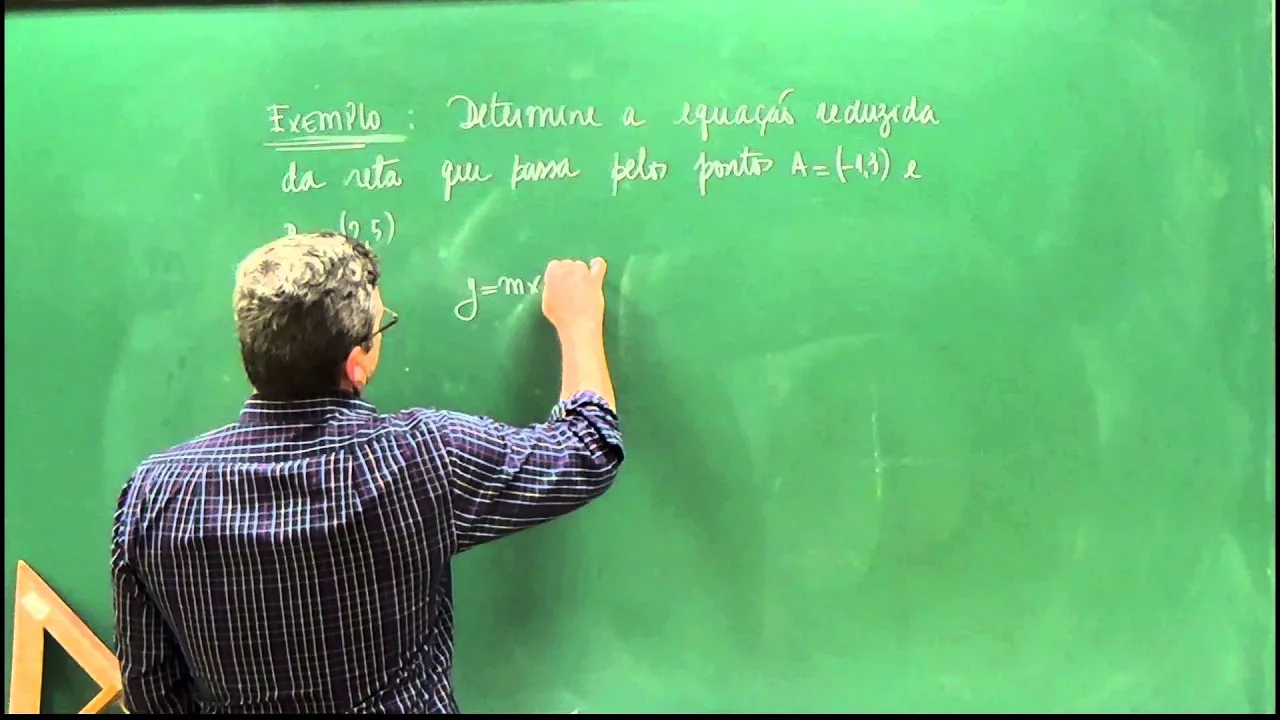 EXEMPLO : Determine a equação reduzida
da reta que passa pelos pontos A = (-1,3) e
(2,5)
y = mx